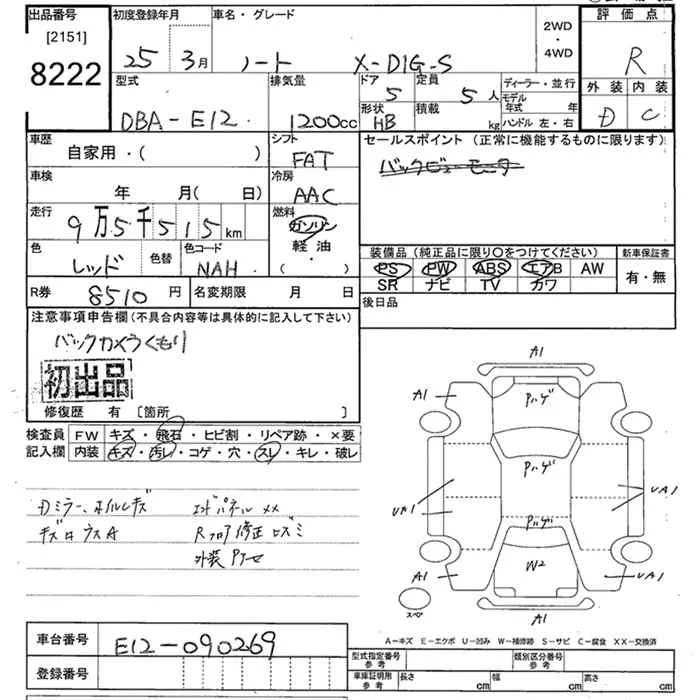 出品番号
[2151]
8222
初度登録年月
25 3月
車名・グレード
ノート X-DIG-S
2WD
・
4WD
評価点
R
外装 内装
D C
型式
DBA-E12
排気量
1200cc
ドア
5
定員
5人
形状
HB
積載
kg
ディーラー・並行
モデル年式 年
ハンドル 左・右
車歴
自家用・( )
シフト
FAT
車検
年 月( 日)
冷房
AAC
走行
9万5千515km
燃料
ガソリン
軽油・
( )
色
レッド
色替
色コード
NAH
R券 8510円
名変期限 月 日
セールスポイント(正常に機能するものに限ります)
バックビューモニター
装備品(純正品に限り〇をつけてください)
PS PW ABS エアB AW
SR ナビ TV カワ
新車保証書
有・無
後日品
注意事項申告欄(不具合内容等は具体的に記入して下さい)
バックカメラくもり
初出品
修復歴 有 [箇所 ]
検査員記入欄
FW キズ・飛石・ヒビ割・リペア跡・×要
内装 キズ・汚レ・コゲ・穴・スレ・キレ・破レ
Dミラー、ホイルキズ
キズロウスA
エンドパネルXX
Rフロア修正
外装
A1
A1
Pハゲ
Pハゲ
Pハゲ
UA1
UA1
W2
A1
UA1
A1
スペア
A-キズ E-エクボ U-凹み W-補修跡 S-サビ C-腐食 XX-交換済
車台番号
E12-090269
登録番号
型式指定番号
参考
類別区分番号
参考
車庫証明用
参考
長さ cm
幅 cm
高さ cm